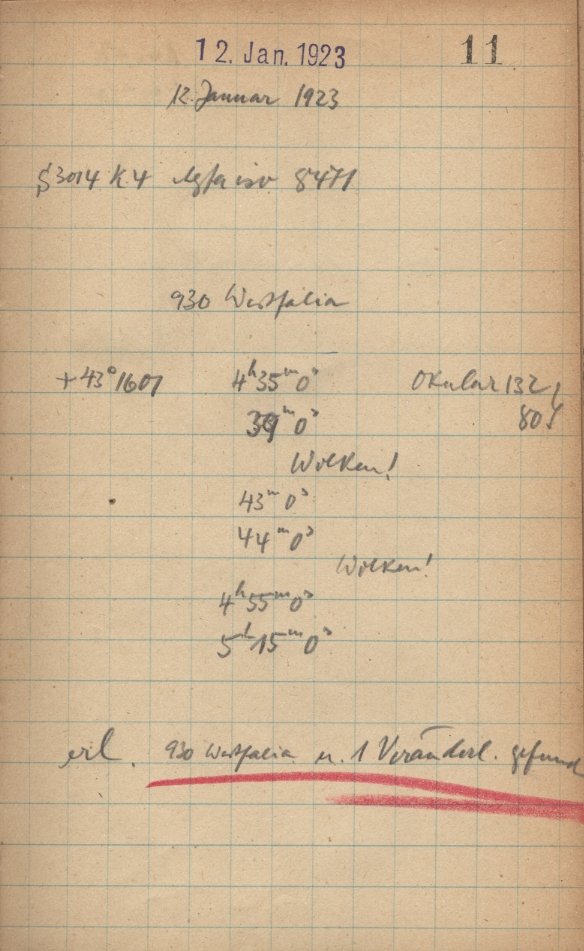 12. Jan. 1923 11
12. Januar 1923
S3014 K4 Agfa iso 8471
930 Westfalia
+43°1607 4ʰ35ᵐ0ˢ Okular 132,
39ᵐ0ˢ 80
Wolken!
43ᵐ0ˢ
44ᵐ0ˢ
Wolken!
4ʰ55ᵐ0ˢ
5ʰ15ᵐ0ˢ
erl. 930 Westfalia u. 1 Veränderl. gefund